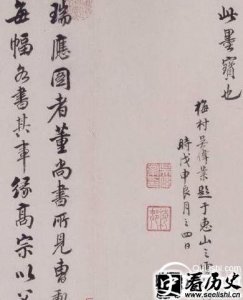 此墨寶也
梅村吴偉業題于惠山之
時戊申良月之四日
瑞應圖者董尚書所見曹
每幅各書其事緣髙宗以
看历史